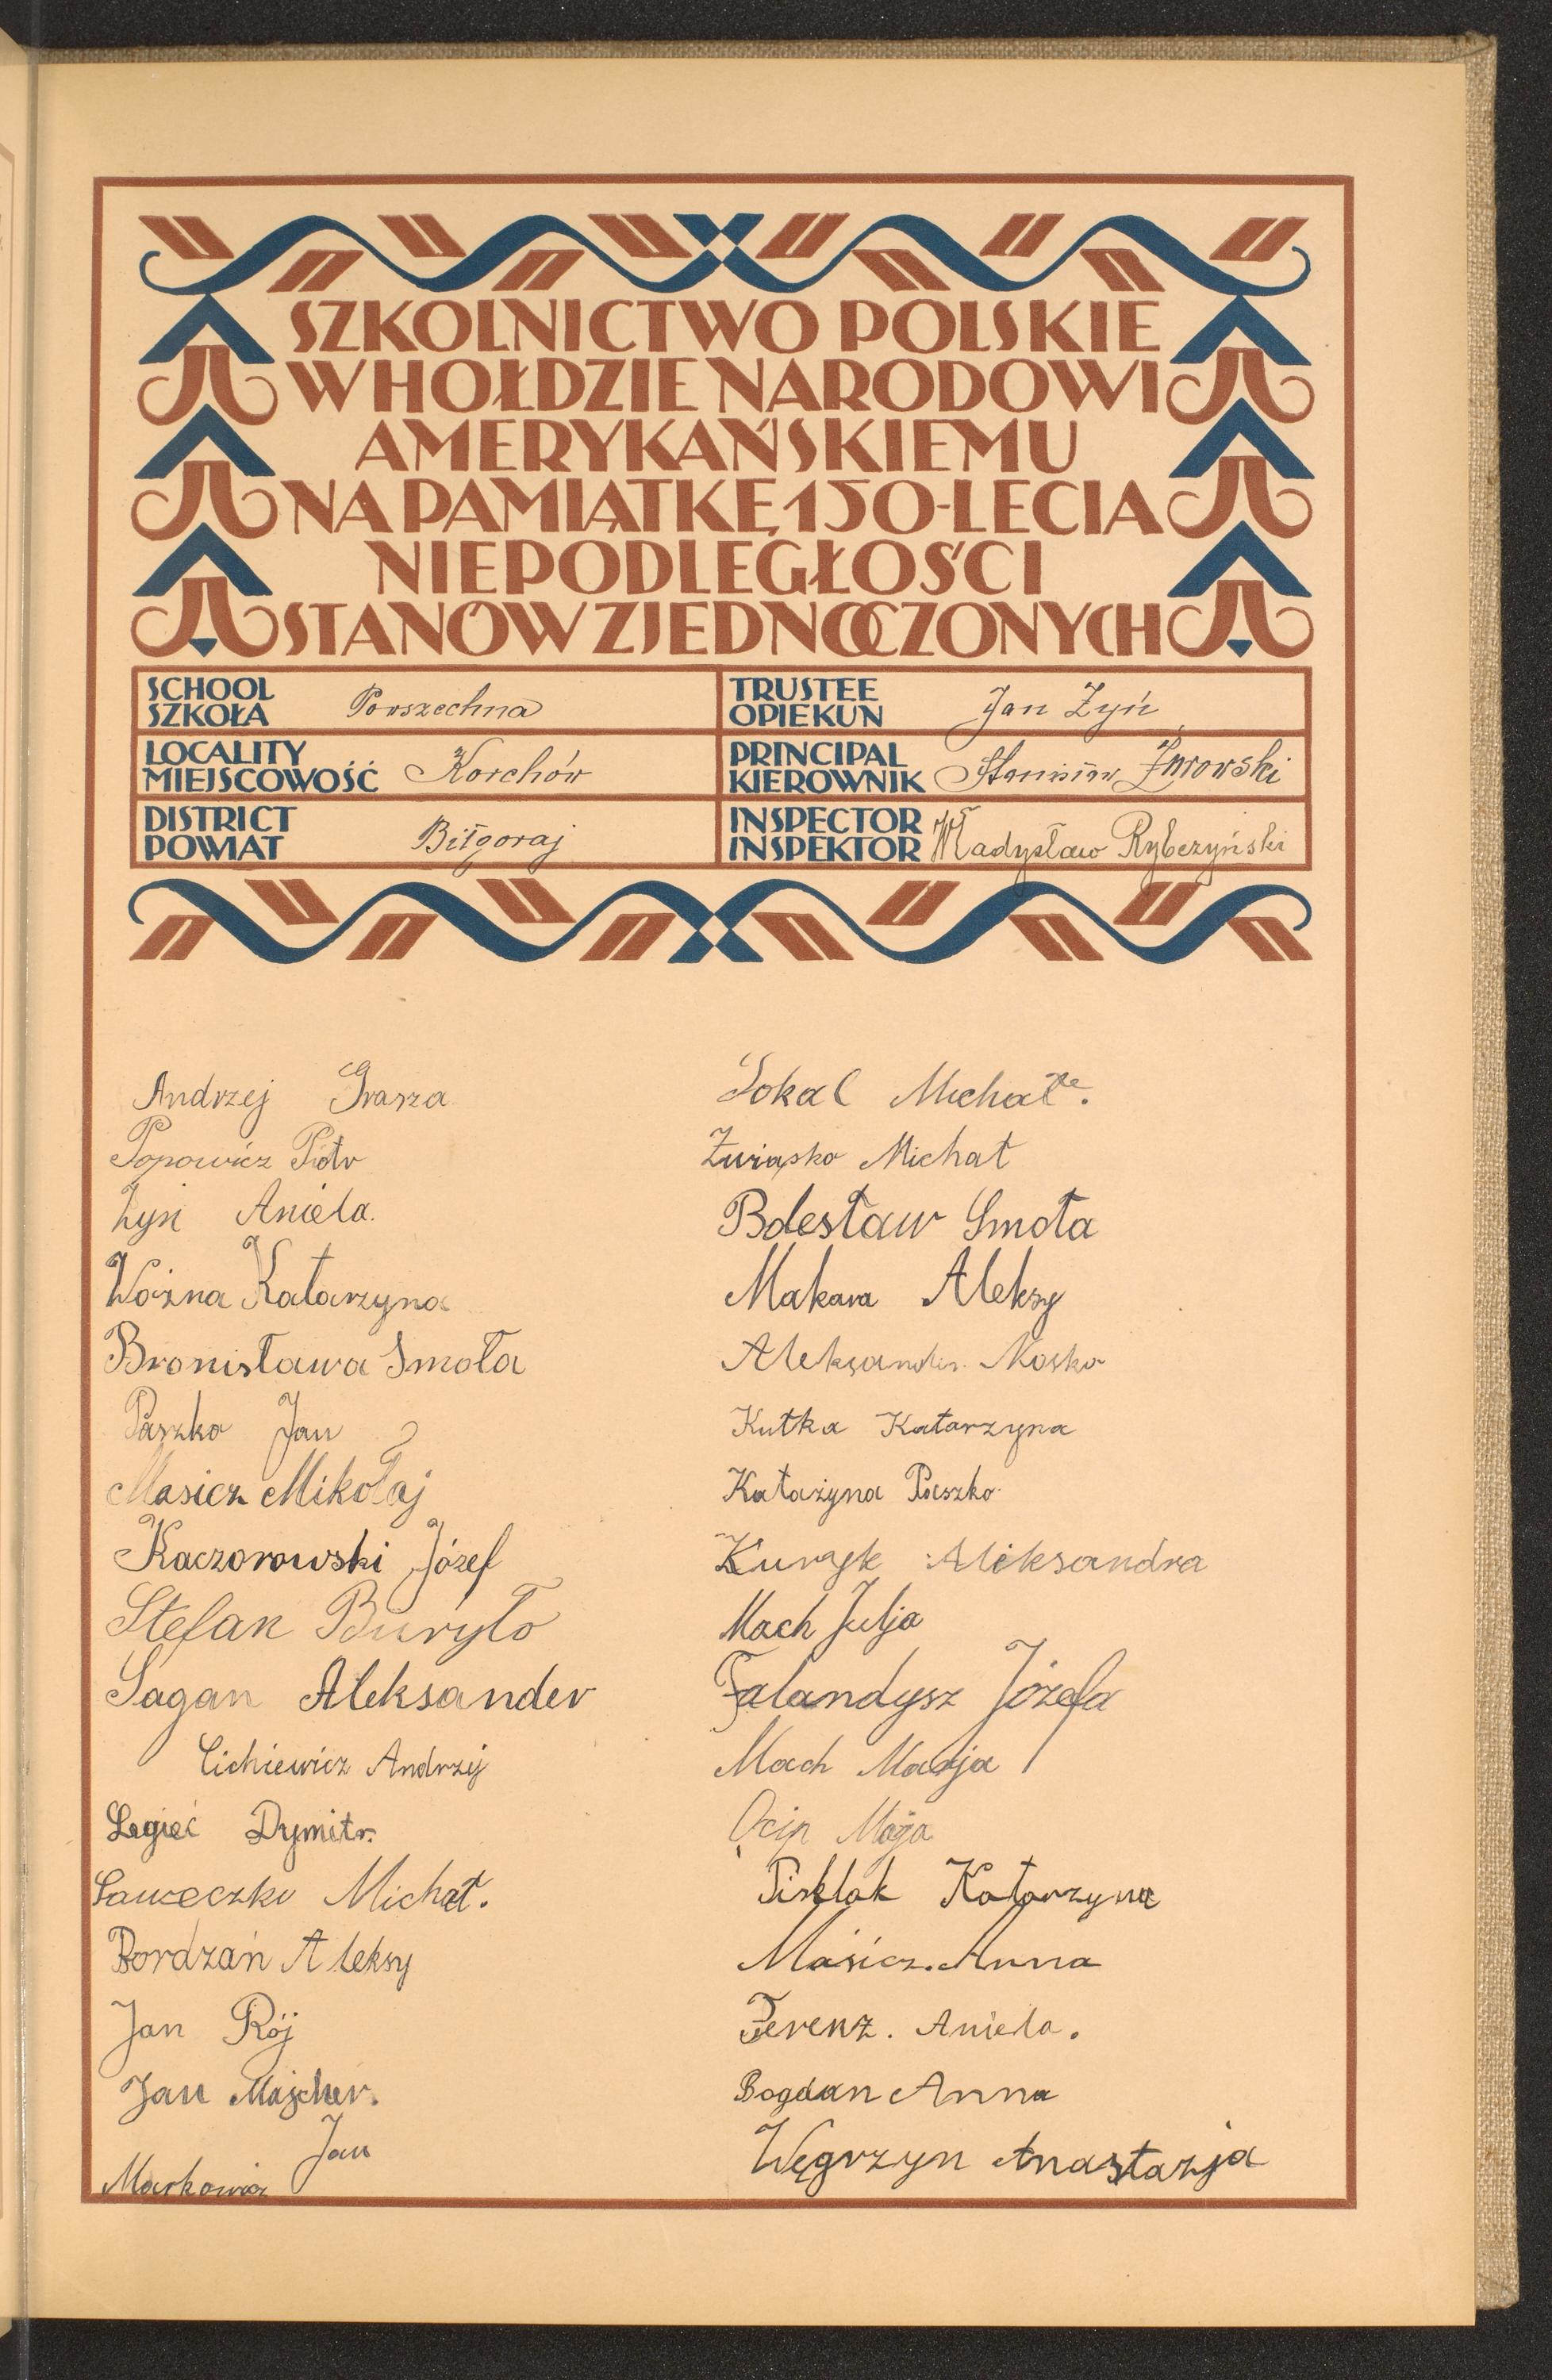 SZKOLNICTWO POLSKIE
W HOŁDZIE NARODOWI
AMERYKAŃSKIEMU
NA PAMIĄTKĘ 150-LECIA
NIEPODLEGŁOŚCI
STANÓW ZJEDNOCZONYCH
SCHOOL
SZKOŁA Powszechna
TRUSTEE
OPIEKUN Jan Żyń
LOCALITY
MIEJSCOWOŚĆ Korchów
PRINCIPAL
KIEROWNIK Stanisław Żurowski
DISTRICT
POWIAT Biłgoraj
INSPECTOR
INSPEKTOR Władysław Rybczyński
Andrzej Grasza
Popowicz Piotr
Żyń Aniela.
Woźna Katarzyna
Bronisława Smoła
Paszko Jan
Masicz Mikołaj
Kaczorowski Józef
Stefan Buryło
Sagan Aleksander
Cichiewicz Andrzej
Legieć Dymitr.
Saweczko Michał.
Bordzań Aleksy
Jan Rój
Jan Majcher.
Markowicz Jan
Sokal Michał.
Związko Michał
Bolesław Smoła
Makara Aleksy
Aleksander Mosko
Kutka Katarzyna
Katażyna Paszko
Kuryk Aleksandra
Mach Julja
Falandysz Józefa
Mach Marja
Ocip
Pisklak Katarzyna
Masicz. Anna
Ferenz. Aniela.
Bogdan Anna
Węgrzyn Anastazja